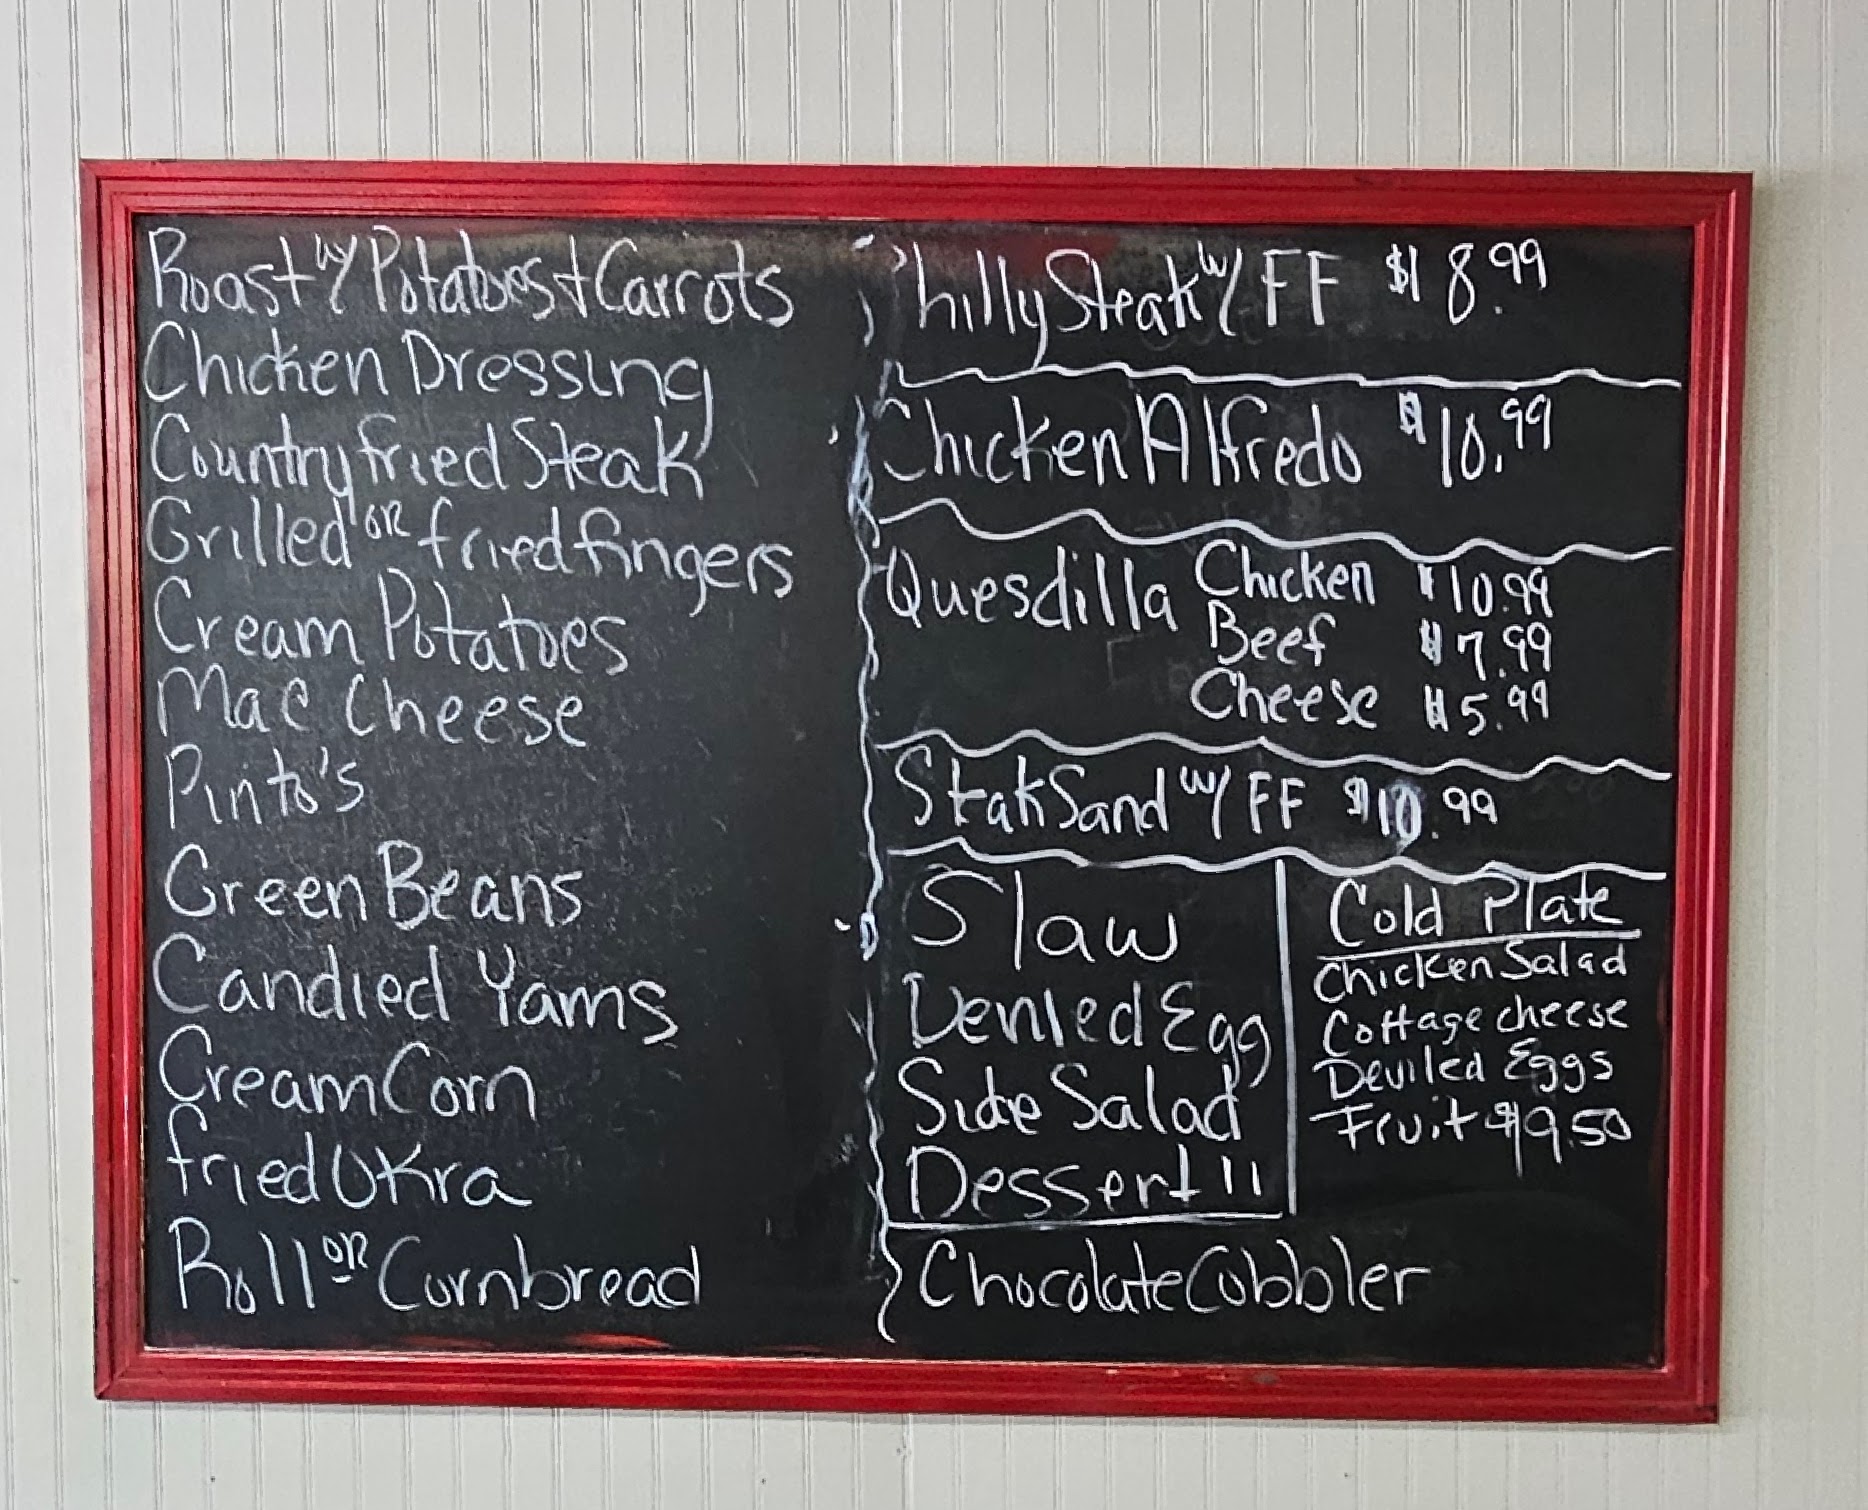 Roast w/ Potatoes + Carrots
Chicken Dressing
Country fried Steak
Grilled or fried fingers
Cream Potatoes
Mac Cheese
Pinto's
Green Beans
Candied Yams
Cream Corn
fried Okra
Roll or Cornbread
Philly Steak w/ FF $8.99
Chicken Alfredo $10.99
Quesdilla Chicken $10.99
Beef $7.99
Cheese $5.99
Steak Sand w/ FF $10.99
Slaw
Deviled Egg
Side Salad
Dessert 11
Cold Plate
Chicken Salad
Cottage cheese
Deviled Eggs
Fruit $9.50
Chocolate Cobbler